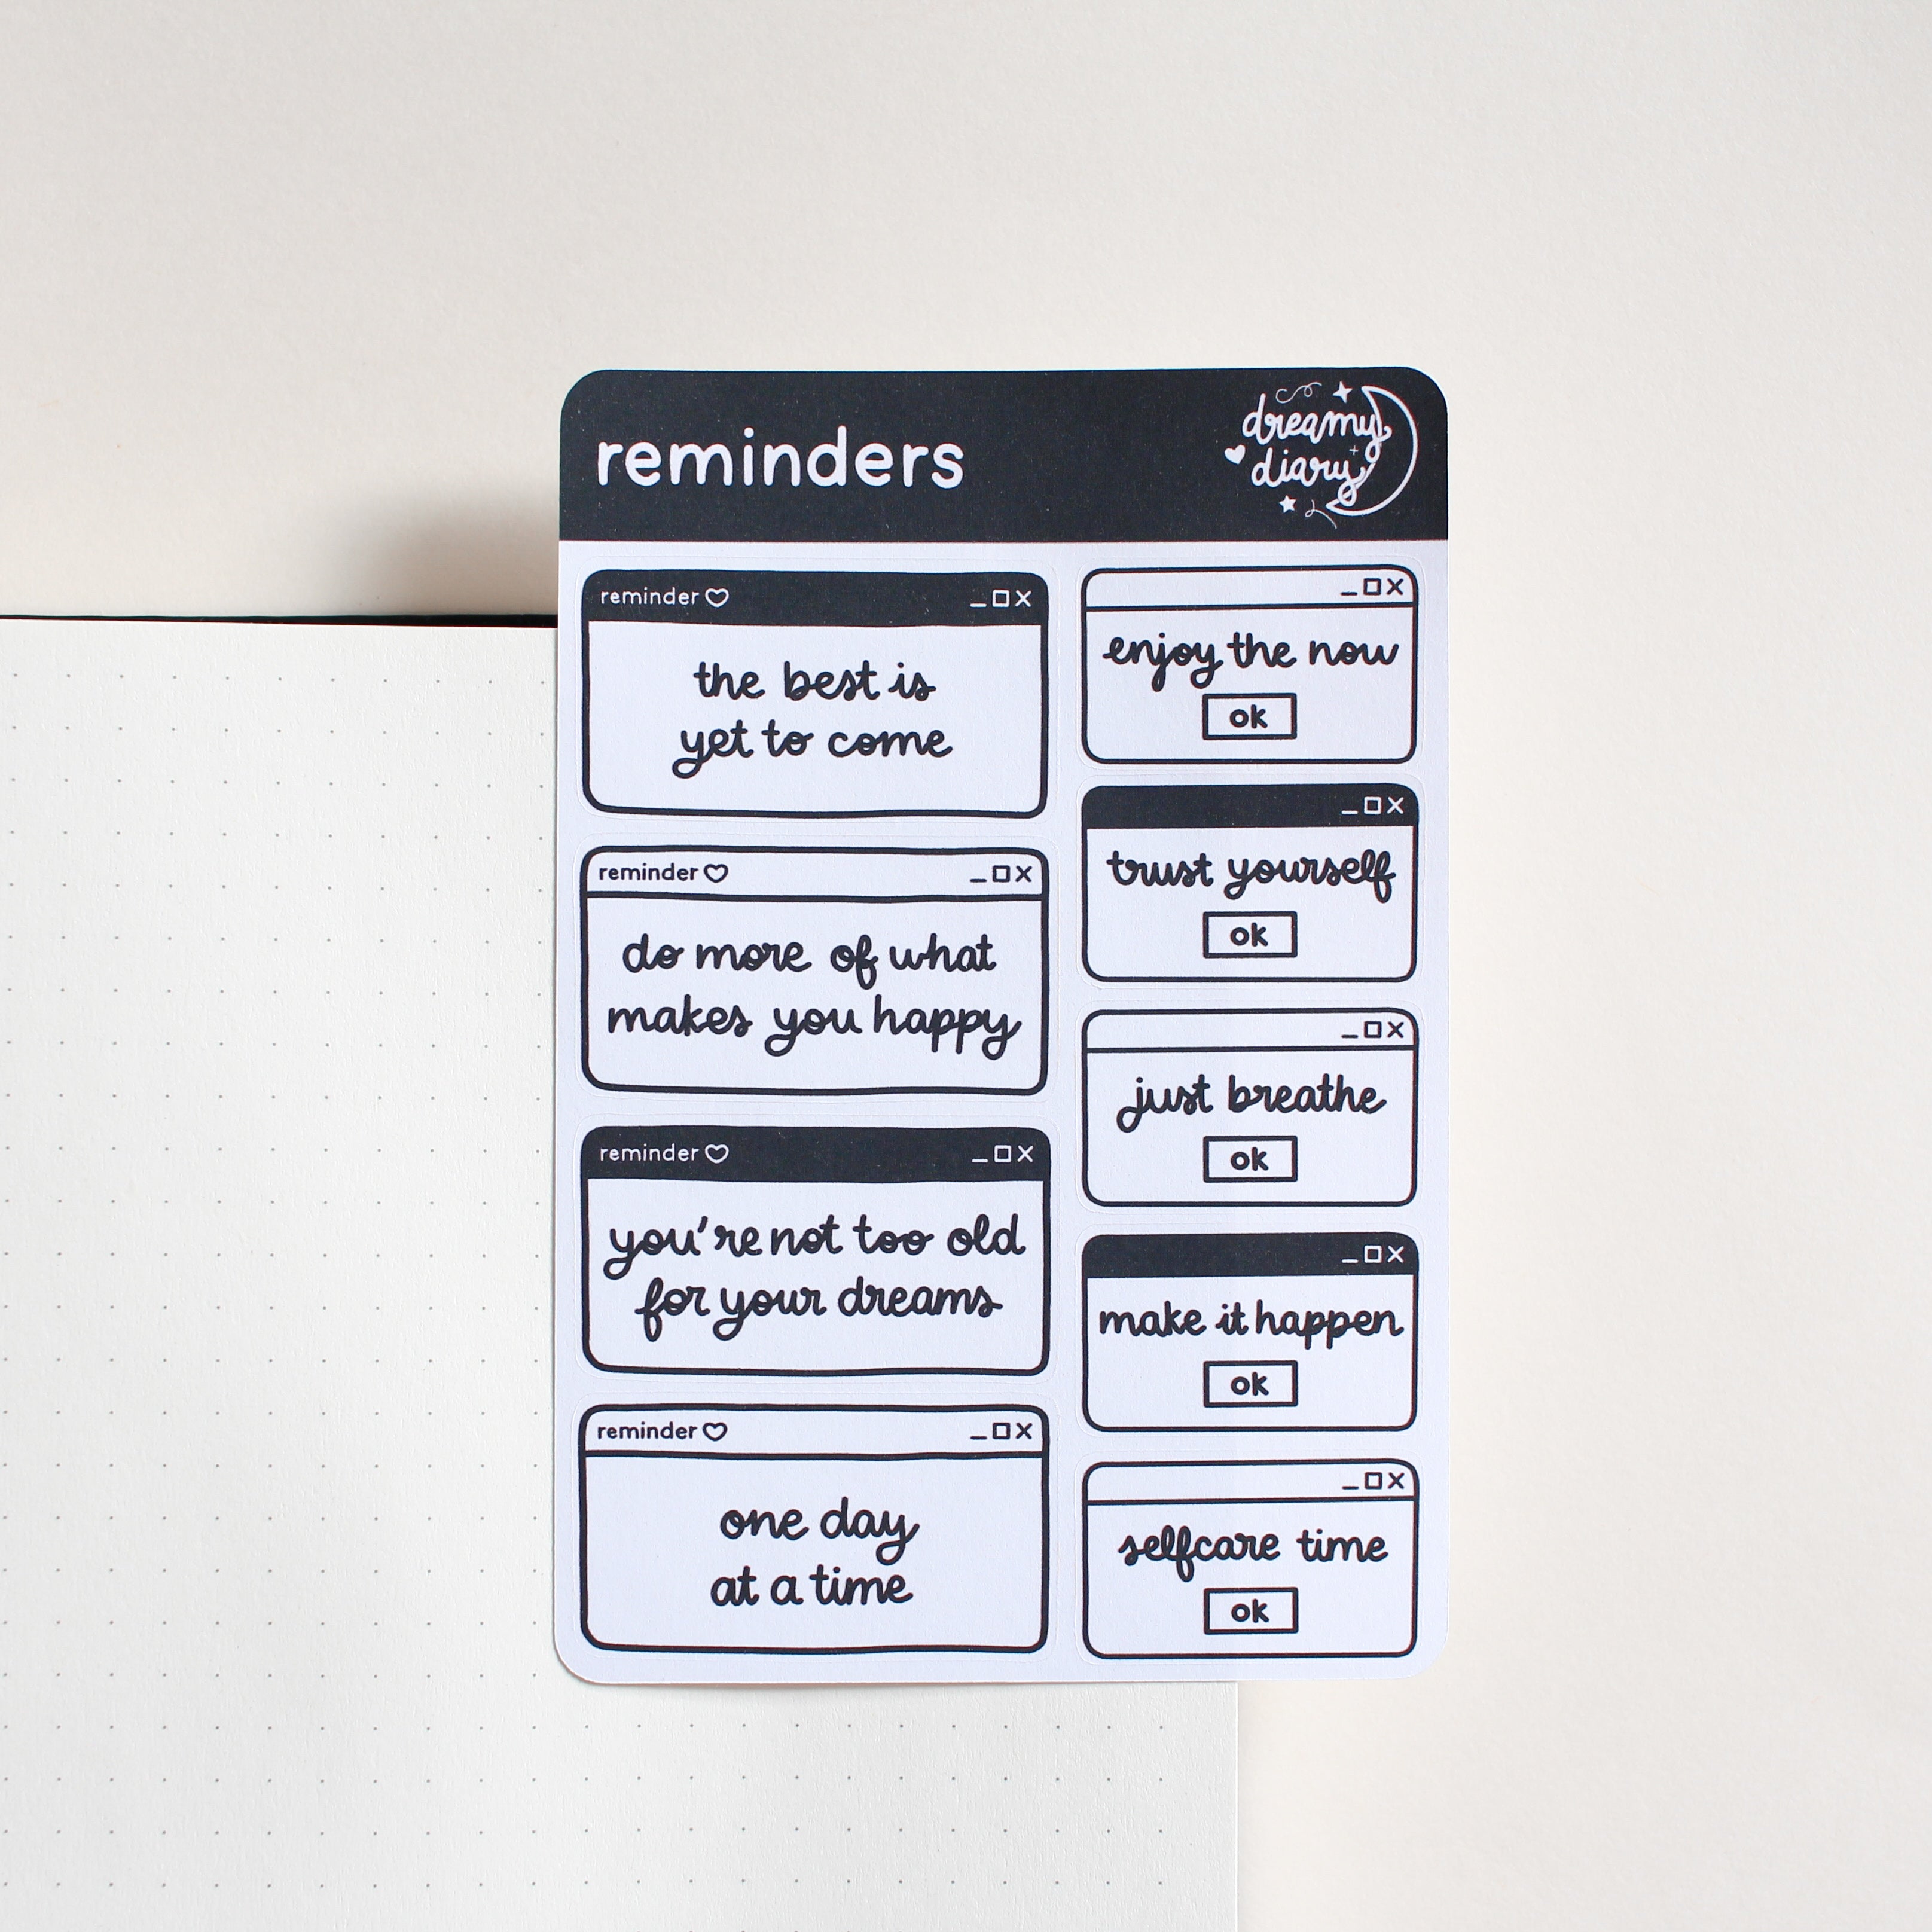 reminders
dreamy
diary
reminder
the best is
yet to come
reminder
do more of what
makes you happy
reminder
you're not too old
for your dreams
reminder
one day
at a time
enjoy the now
ok
trust yourself
ok
just breathe
ok
make it happen
ok
selfcare time
ok